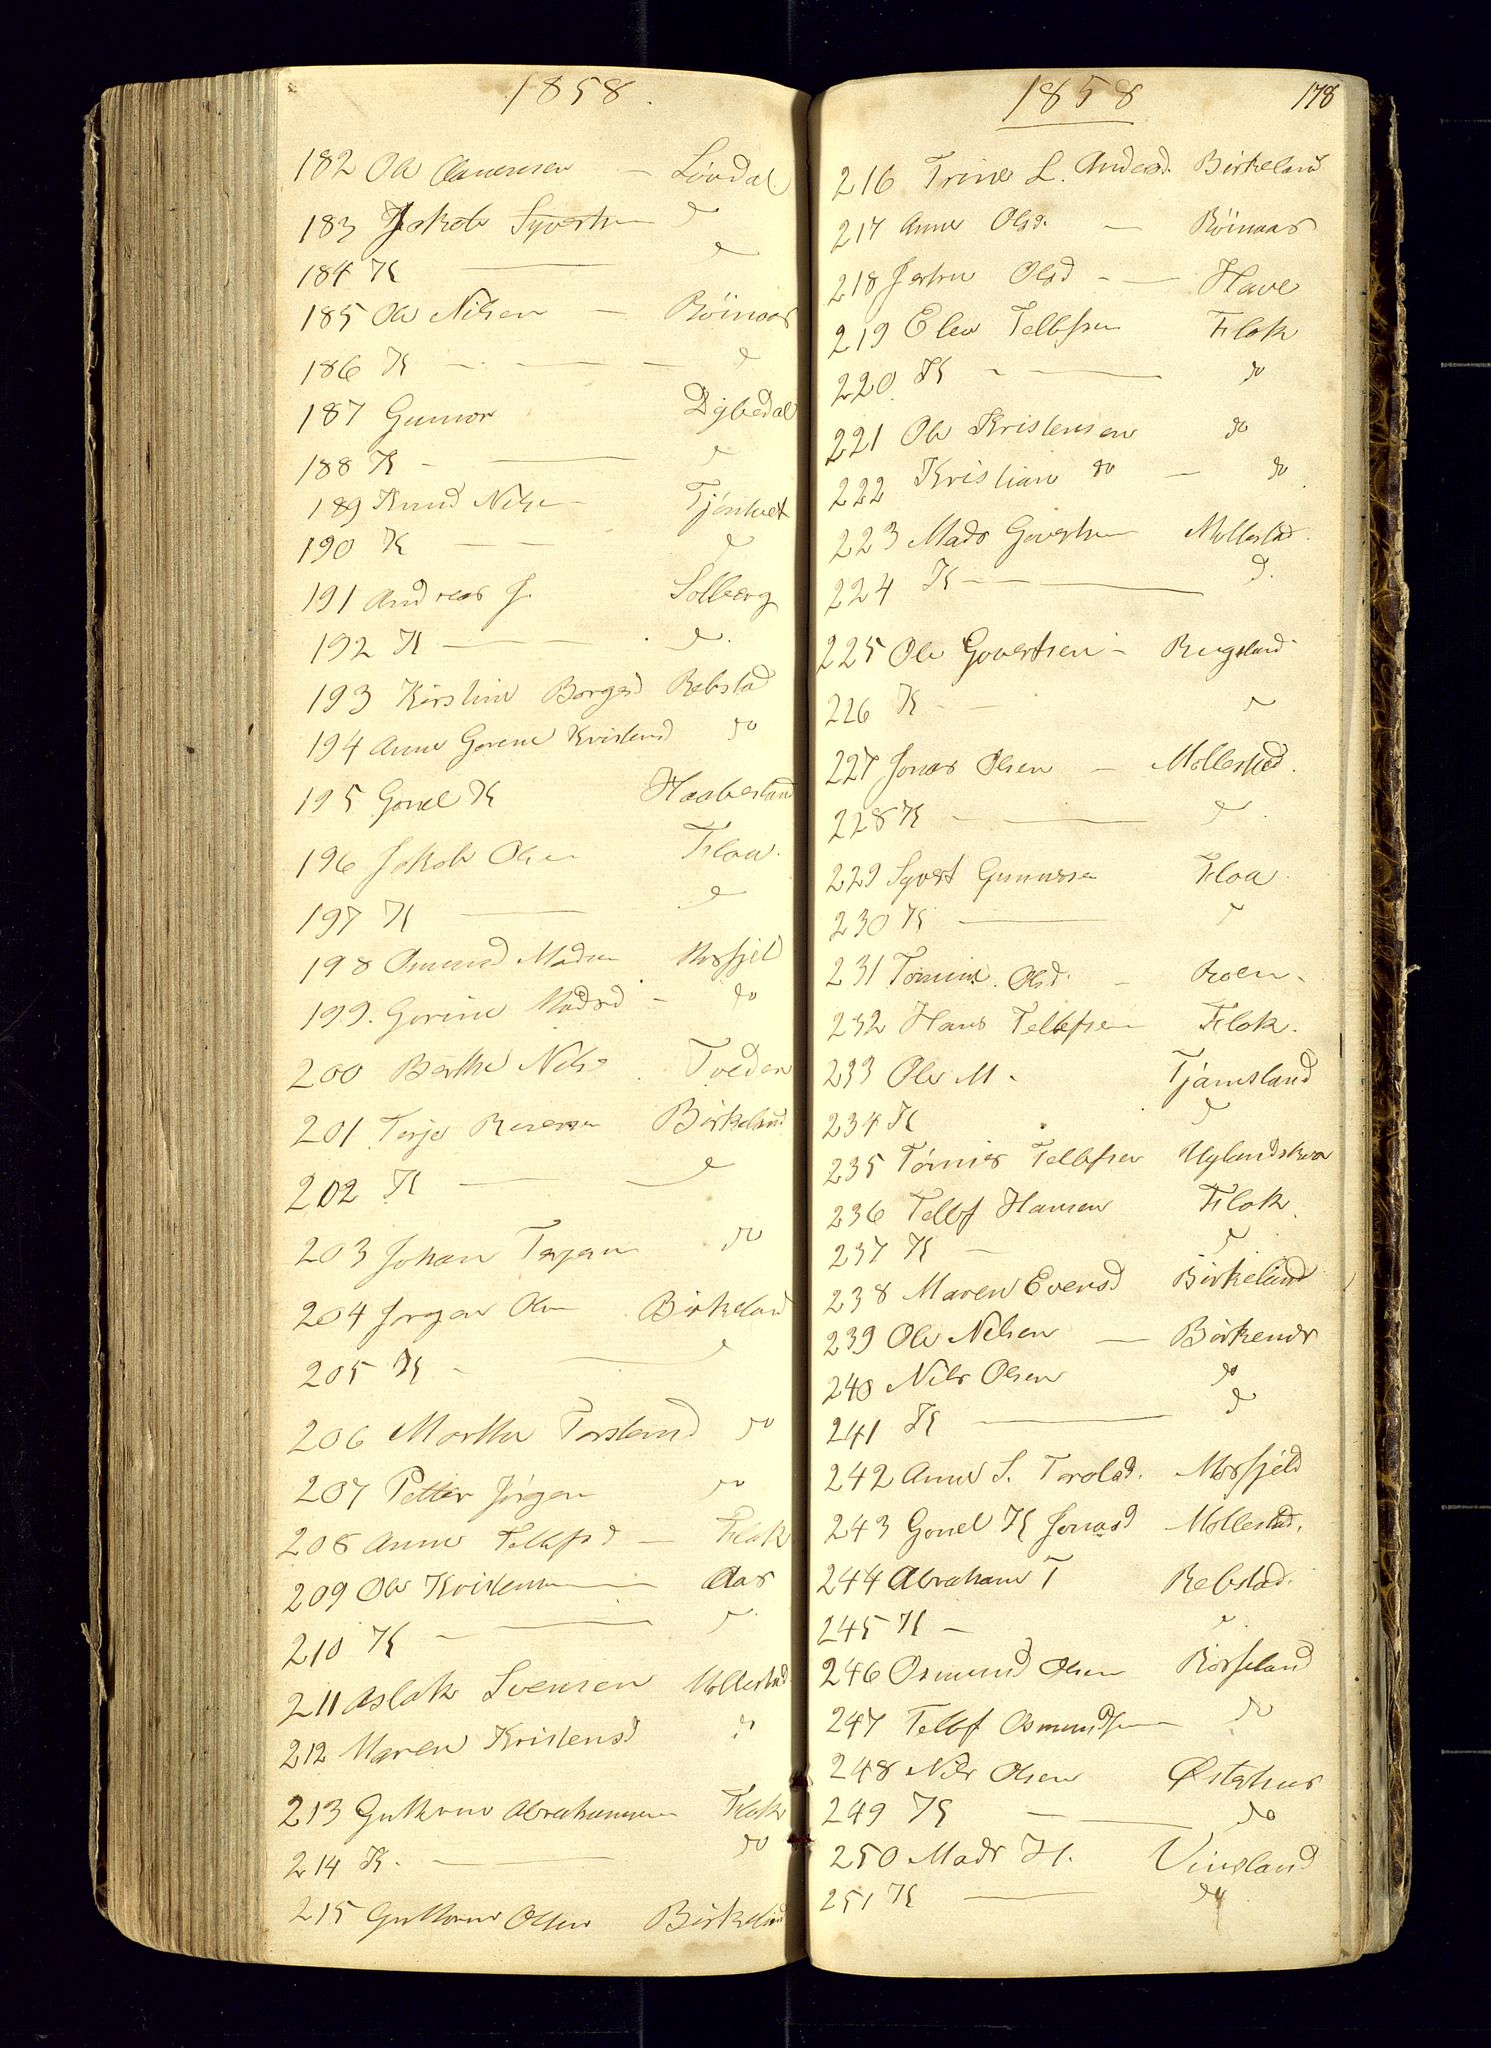 1858.
182 Ole Clemensen — Løvdal
183 Jakob Syvertsen do
184 K — do
185 Ole Nilsen — Röinaas
186 K - — — do
187 Gunnor Dybedal
188 K - — do
189 Knud Nilsen Tjönhvet
190 K — — do
191 Andreas J. Solberg
192 K — — do
193 Kirstine Borgesd Rebstad
194 Anne Gorene Kristensd do
195 Gonel K Haabesland
196 Jakob Olsen Floa.
197 K — do
198 Osmund Madsen Mosfjeld
199. Gorine Madsd — do
200 Berthe Nils Tveden
201 Terje Birkeland
202 K — do
203 Johan Terjesen do
204 Jørgen Olsen Birkeland
205 K - — do
206 Marthe Torslensd do
207 Petter Jörgen do
208 Anne Tellefsd — Flak
209 Ole Kristensen — Aas
210 K - — do
211 Aslak Svensen Mollestad
212 Maren Kristensd do
213 Guttorm Abrahamsen Flak
214 K. — do
215 Guttorm Olsen Birkeland
1858 178
216 Trine L. Andersd. Birkeland
217 Anne Olsd. — Röinaas
218 Olsd - — Have
219 Elev Tellefsen Flak
220. K - — do
221 Ole Kristensen do
222 Kristian do — do
223 Mads Govertsen Mollestad.
224 K - — d.
225 Ole Govertsen — Rugsland
226 K - — do
227 Jonas Olsen — Mollestad.
228 K - — do
229 Syvert Gunnersen Floa.
230 K — do
231 Tomine. Olsd. — Roen.
232 Hans Tellefsen Flak.
233 Ole M. Tjamsland
234 K do
235 Tönnes Tellefsen
236 Tellef Hansen Flak
237 K — do
238 Maren Evensd Birkeland
239 Ole Nilsen — Birkenes
240 Nils Olsen do
241 K — do
242 Anne S. Torolsd. Mosfjeld
243 Gonel K Jonasd Mollestad.
244 Abraham T Rebstad.
245 K — do
246 Osmund Olsen Rosseland
247 Tellef Osmundsen do
248 Nils Olsen Østehus
249 K — do
250 Mads H. Vinsland
251 K — do